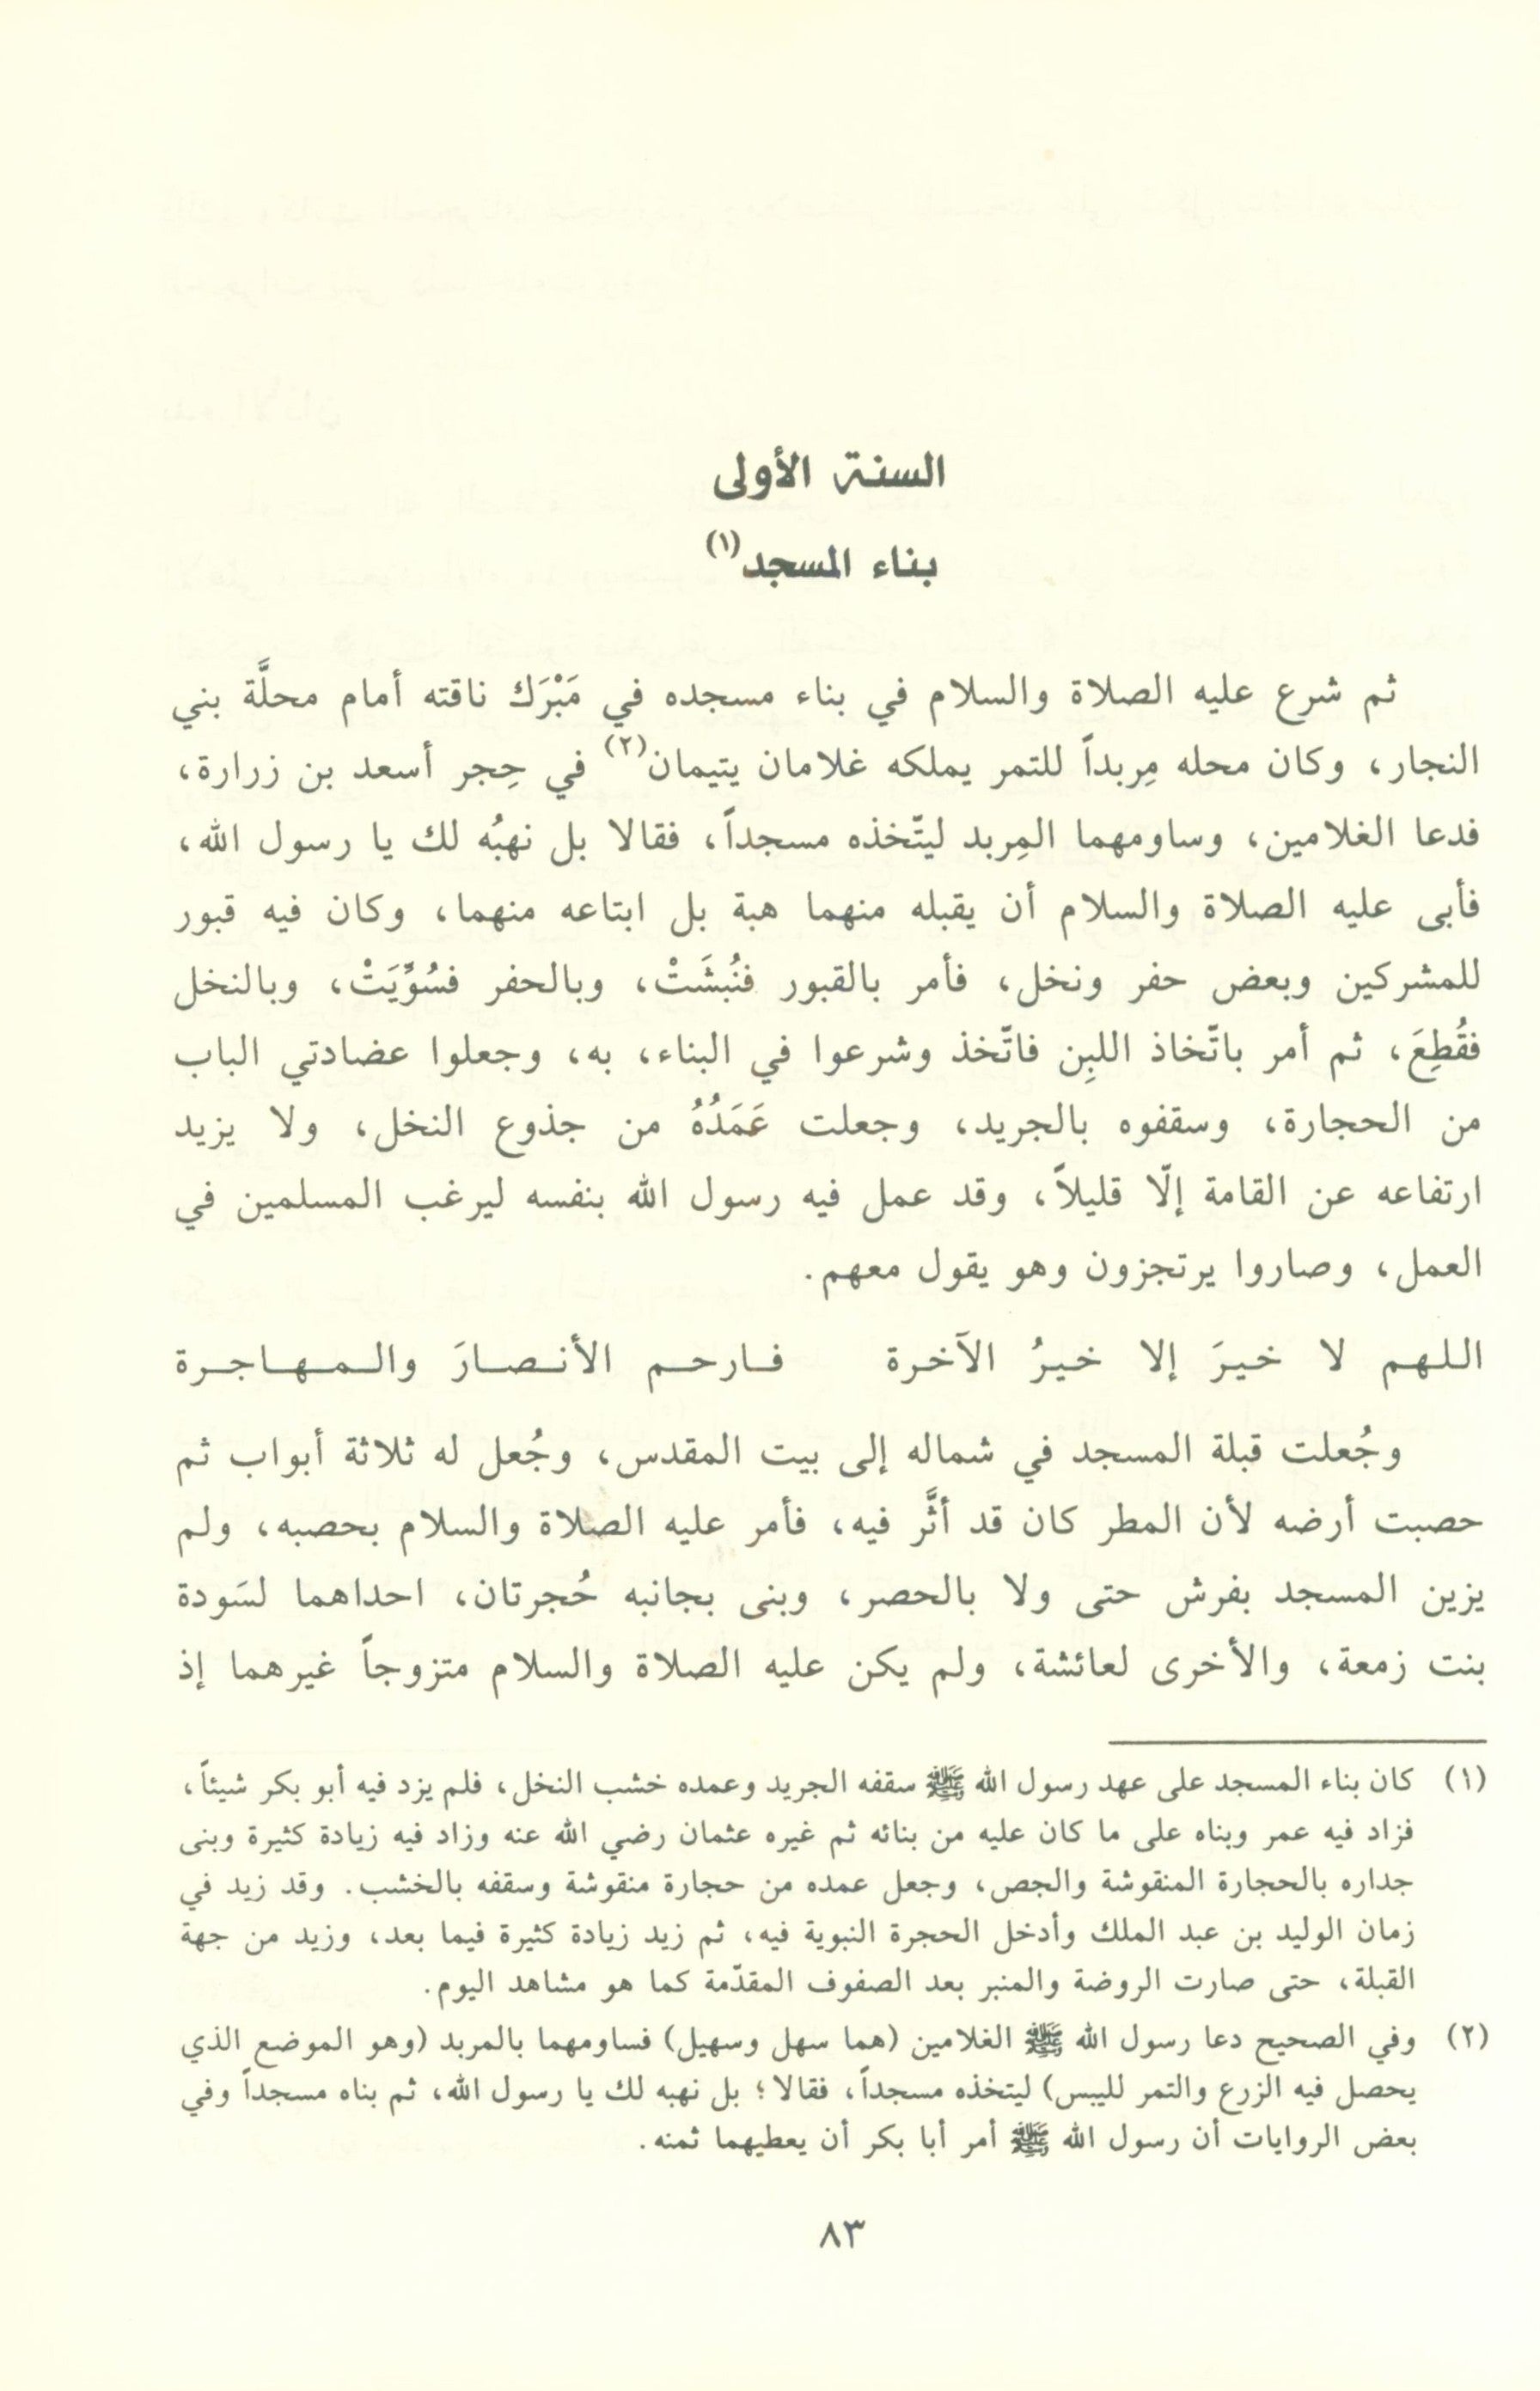 السنة الأولى
بناء المسجد(١)
ثم شرع عليه الصلاة والسلام في بناء مسجده في مَبْرَك ناقته أمام محلَّة بني
النجار، وكان محله مِربداً للتمر يملكه غلامان يتيمان(٢) في حِجر أسعد بن زرارة،
فدعا الغلامين، وساومهما المِربد ليتّخذه مسجداً، فقالا بل نهبُه لك يا رسول الله،
فأبى عليه الصلاة والسلام أن يقبله منهما هبة بل ابتاعه منهما، وكان فيه قبور
للمشركين وبعض حفر ونخل، فأمر بالقبور فنُبشَتْ، وبالحفر فسُوِّيَتْ، وبالنخل
فقُطِعَ، ثم أمر باتّخاذ اللبِن فاتّخذ وشرعوا في البناء، به، وجعلوا عضادتي الباب
من الحجارة، وسقفوه بالجريد، وجعلت عَمَدُهُ من جذوع النخل، ولا يزيد
ارتفاعه عن القامة إلّا قليلاً، وقد عمل فيه رسول الله بنفسه ليرغب المسلمين في
العمل، وصاروا يرتجزون وهو يقول معهم.
اللهم لا خيرَ إلا خيرُ الآخرة فارحم الأنصارَ والمهاجرة
وجُعلت قبلة المسجد في شماله إلى بيت المقدس، وجُعل له ثلاثة أبواب ثم
حصبت أرضه لأن المطر كان قد أثَّر فيه، فأمر عليه الصلاة والسلام بحصبه، ولم
يزين المسجد بفرش حتى ولا بالحصر، وبنى بجانبه حُجرتان، احداهما لسَودة
بنت زمعة، والأخرى لعائشة، ولم يكن عليه الصلاة والسلام متزوجاً غيرهما إذ
(١) كان بناء المسجد على عهد رسول الله ﷺ سقفه الجريد وعمده خشب النخل، فلم يزد فيه أبو بكر شيئاً،
فزاد فيه عمر وبناه على ما كان عليه من بنائه ثم غيره عثمان رضي الله عنه وزاد فيه زيادة كثيرة وبنى
جداره بالحجارة المنقوشة والجص، وجعل عمده من حجارة منقوشة وسقفه بالخشب. وقد زيد في
زمان الوليد بن عبد الملك وأدخل الحجرة النبوية فيه، ثم زيد زيادة كثيرة فيما بعد، وزيد من جهة
القبلة، حتى صارت الروضة والمنبر بعد الصفوف المقدّمة كما هو مشاهد اليوم.
(٢) وفي الصحيح دعا رسول الله ﷺ الغلامين (هما سهل وسهيل) فساومهما بالمربد (وهو الموضع الذي
يحصل فيه الزرع والتمر لليبس) ليتخذه مسجداً، فقالا؛ بل نهبه لك يا رسول الله، ثم بناه مسجداً وفي
بعض الروايات أن رسول الله ﷺ أمر أبا بكر أن يعطيهما ثمنه.
٨٣